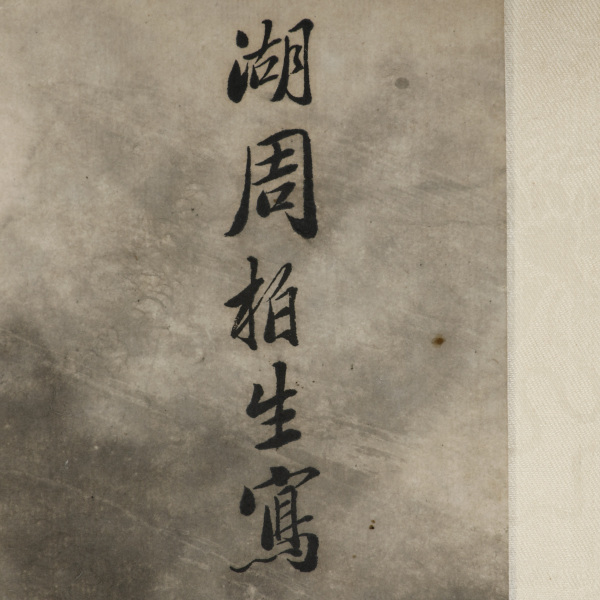 湖周柏生寫